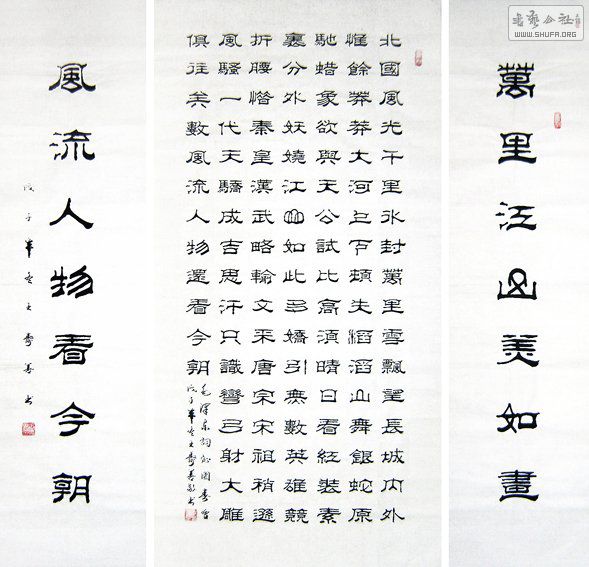 書藝公社
WWW.SHUFA.ORG
萬里江山美如畫
北國風光千里冰封萬里雪飄望長城內外
惟餘莽莽大河上下頓失滔滔山舞銀蛇原
馳蠟象欲與天公試比高須晴日看紅裝素
裹分外妖嬈江山如此多嬌引無數英雄競
折腰惜秦皇漢武略輸文采唐宗宋祖稍遜
風騷一代天驕成吉思汗只識彎弓射大雕
俱往矣數風流人物還看今朝
毛澤東詞沁園春雪
戊子年
風流人物看今朝
戊子年